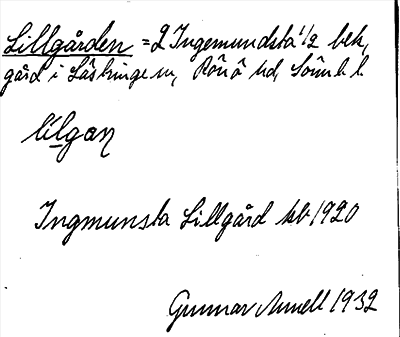 Lillgården = 2 Ingemundsta 1/2 bek,
gård i Läskinge sn, Rönö hd, Söml. l.
lilgaɳ
Ingmunsta Lillgård kb 1920
Gunnar 1932